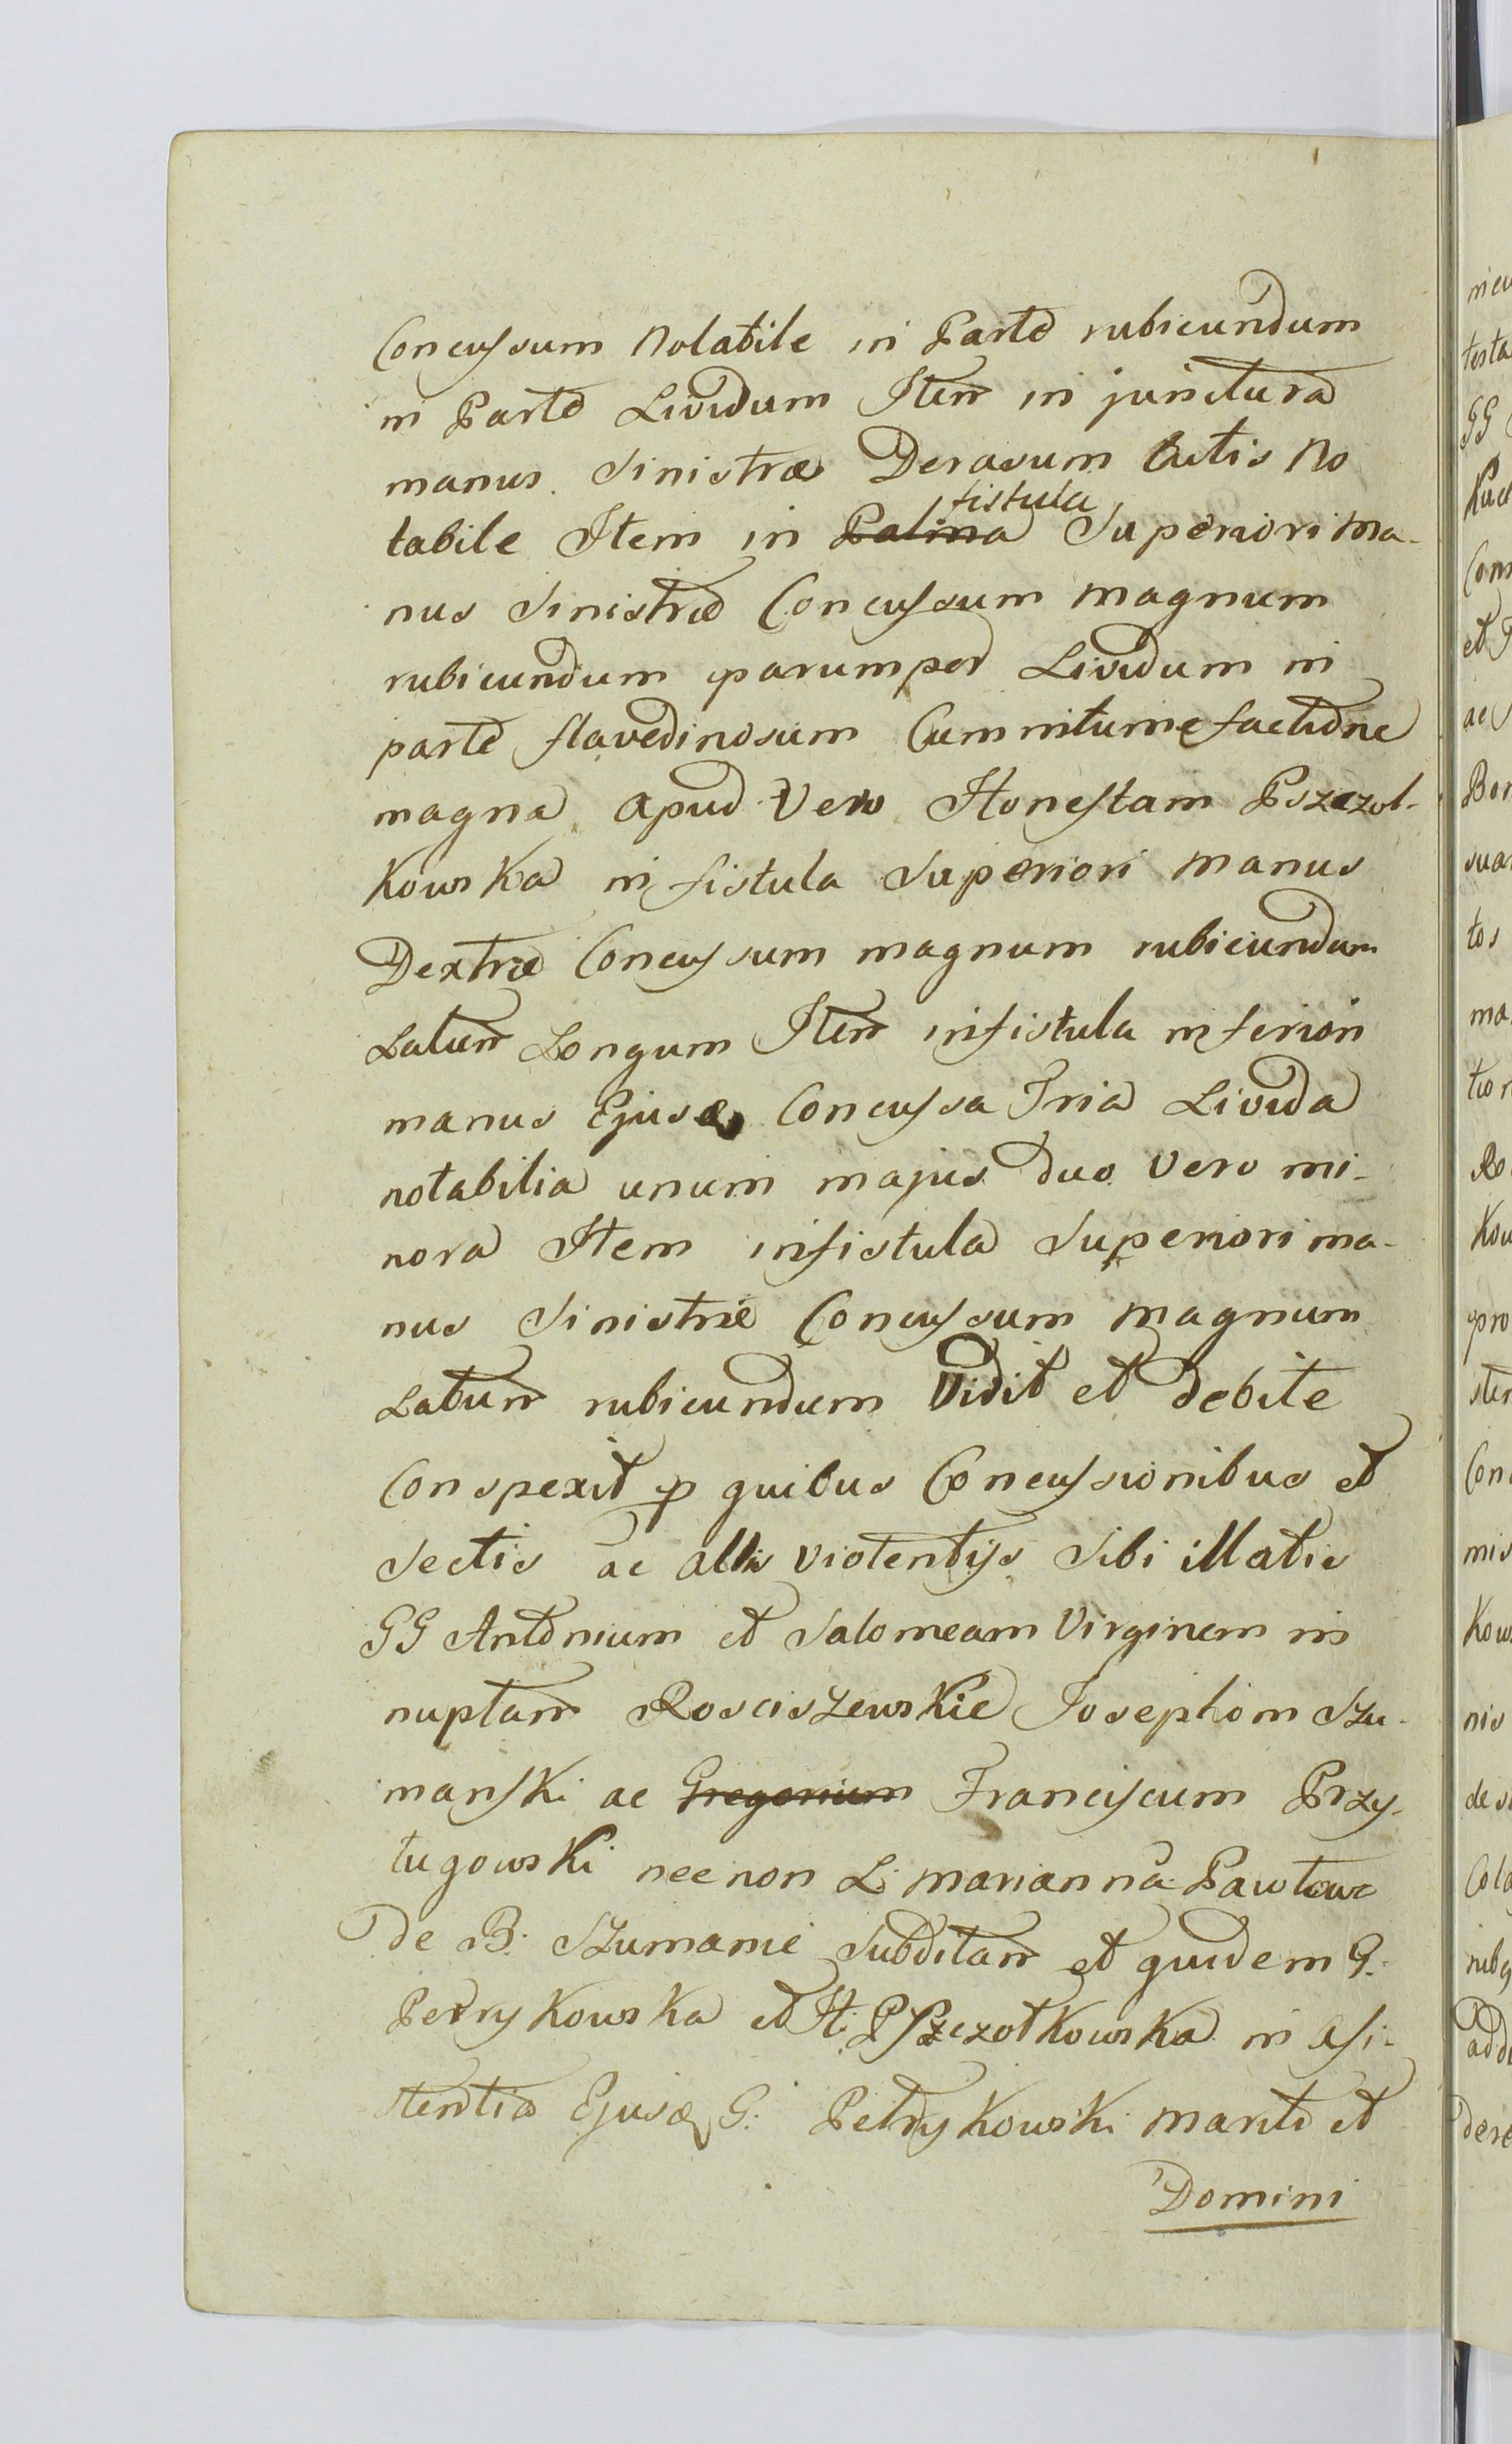 Concussum Notabile in Parte rubicundum
in Parte Lividum Item in junctura
manus Sinistræ Derasum Cutis No
tabile Item in Palma fistula Superiori Ma-
nus Sinistræ Concussum magnum
rubicundum parumper Lividum in
parte flavedinosum Cum intumefactione
magna apud Vero Honestam Pszczol-
kowska in fistula Superiori Manus
Dextræ Concussum magnum rubicundum
Latum Longum Item in fistula inferiori
manus Ejusq Concussa Tria Livida
notabilia unum majus duo vero mi-
nora Item in fistula Superiori ma-
nus Sinistræ Concussum Magnum
Latum rubicundum Vidit et debite
Conspexit p quibus Concussionibus et
Sectis ac alÿs violentÿs Sibi illatis
GG Antonium et Salomeam Virginem in
nuptam Rosciszewskie Josephom Szu-
manski ac Gregorium Franciscum Przy-
tugowski nec non L. Marianna Pawlowa
de B. Szumanie Subditam et quidem G.
Petrykowska et H. Pszczołkowska in assi-
stentia Ejusq G. Petrykowski Mariti et
Domini